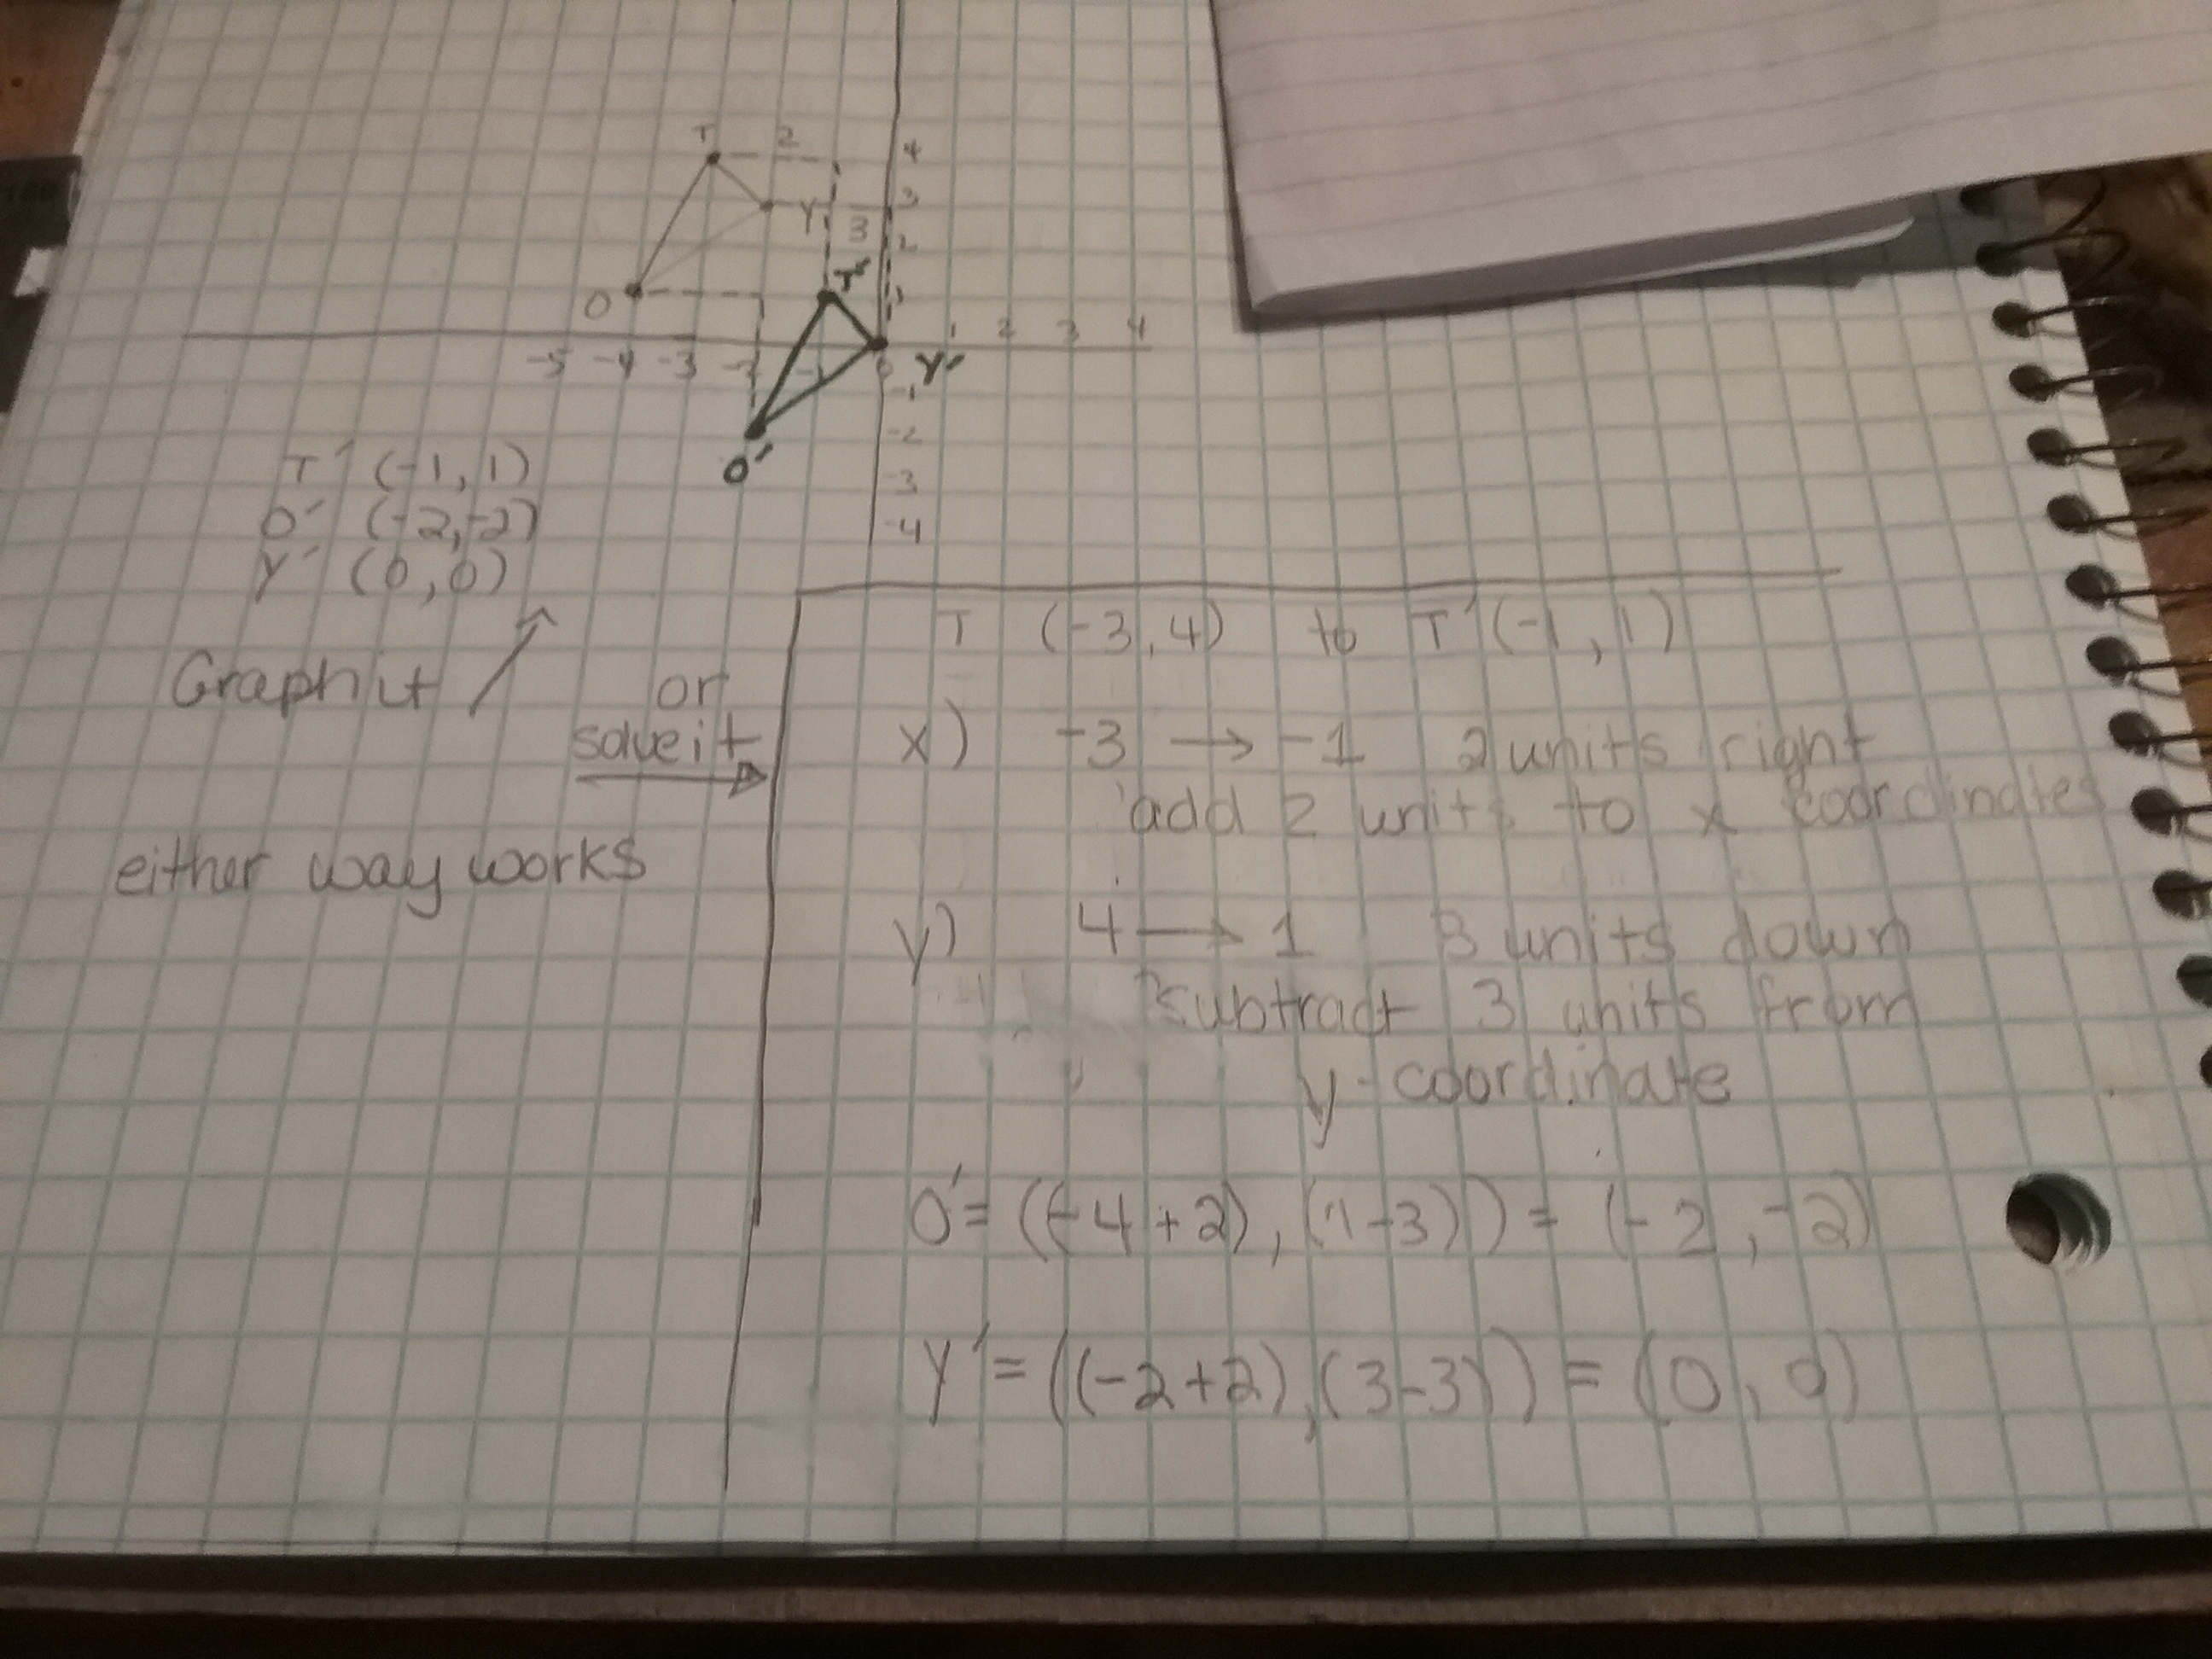 T 2 4
3
Y 3 2
T' 1
O
1 2 3 4
-5 -4 -3 -2 -1 0 Y'
-1
-2
O'
-3
-4
T' (-1, 1)
O' (-2, -2)
Y' (0, 0)
Graph it
or
solve it
either way works
T (-3, 4) to T' (-1, 1)
x) -3 → -1 2 units right
add 2 units to x coordinates
y) 4 → 1 3 units down
subtract 3 units from
y-coordinate
O' = ((-4 + 2), (1-3)) = (-2, -2)
Y' = ((-2+2), (3-3)) = (0, 0)